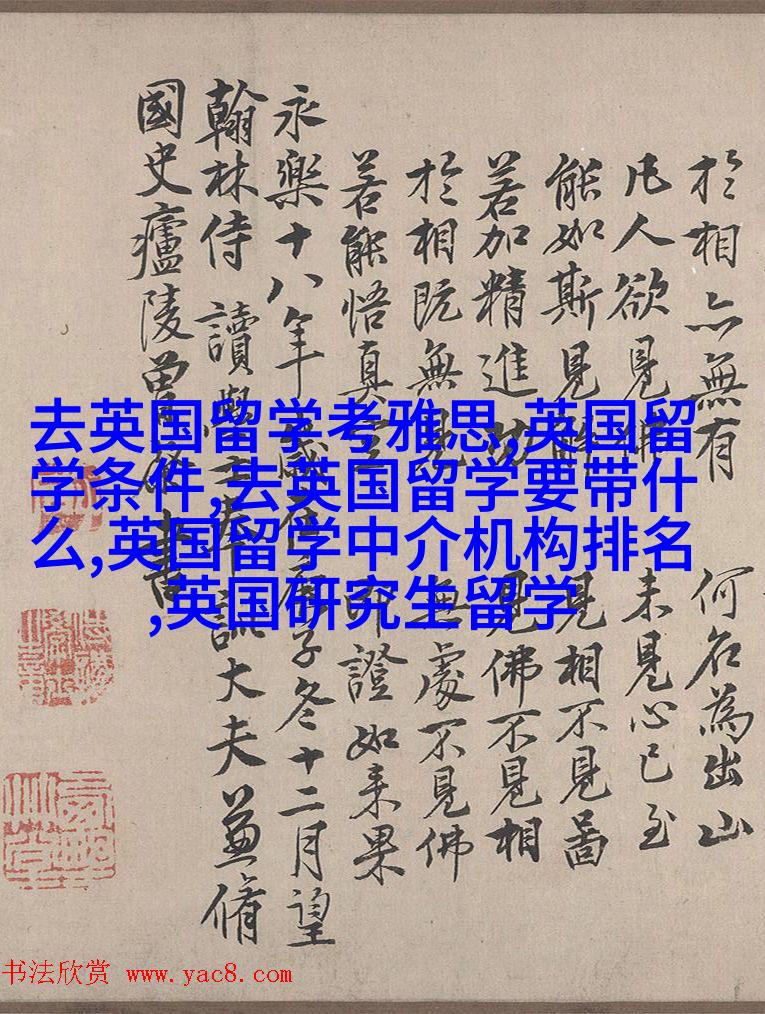 於相亦無有 何名為出山
凡人欲見佛 未見心已至
能如斯見解 見相不見啚
若加精進功 見佛不見相
於相既無見 無處不見佛
若能悟真空 即證如来果
永樂十八年歲在庚子冬十二月望
翰林侍讀學士奉訓大夫兼脩
國史廬陵曾棨書
去英国留学考雅思,英国留
学条件,去英国留学要带什
么,英国留学中介机构排名
,英国研究生留学
书法欣赏 www.yac8.com